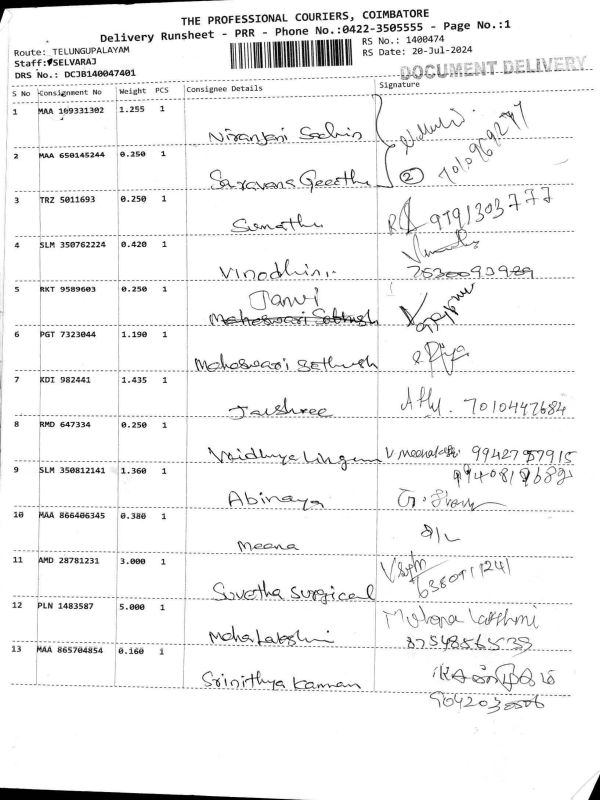 THE PROFESSIONAL COURIERS, COIMBATORE
Delivery Runsheet - PRR - Phone No.:0422-3505555 - Page No.:1
Route: TELUNGUPALAYAM
RS No.: 1400474
Staff: SELVARAJ
RS Date: 20-Jul-2024
DRS No.: DCJB140047401
DOCUMENT DELIVERY
S No Consignment No Weight PCS Consignee Details Signature
1 MAA 109331302 1.255 1
Niranjani Sachin
7010969277
2 MAA 650145244 0.250 1
2
Saravana Geetha
3 TRZ 5011693 0.250 1
Sumathi 9791303777
4 SLM 350762224 0.420 1
Vinodhini
5 RKT 9589603 0.250 1
Janvi
6 PGT 7323044 1.190 1
Maheswari Sethush Priya
7 KDI 982441 1.435 1
Jaishree 7010447684
8 RMD 647334 0.250 1
Vaidhya Lingam V meenakshi 9942757915
9 SLM 350812141 1.360 1
Abinaya
10 MAA 866406345 0.380 1
meena
11 AMD 28781231 3.000 1
Suvetha Surgical
12 PLN 1483587 5.000 1
Mahalakshmi
13 MAA 865704854 0.160 1
Srinithya Kannan